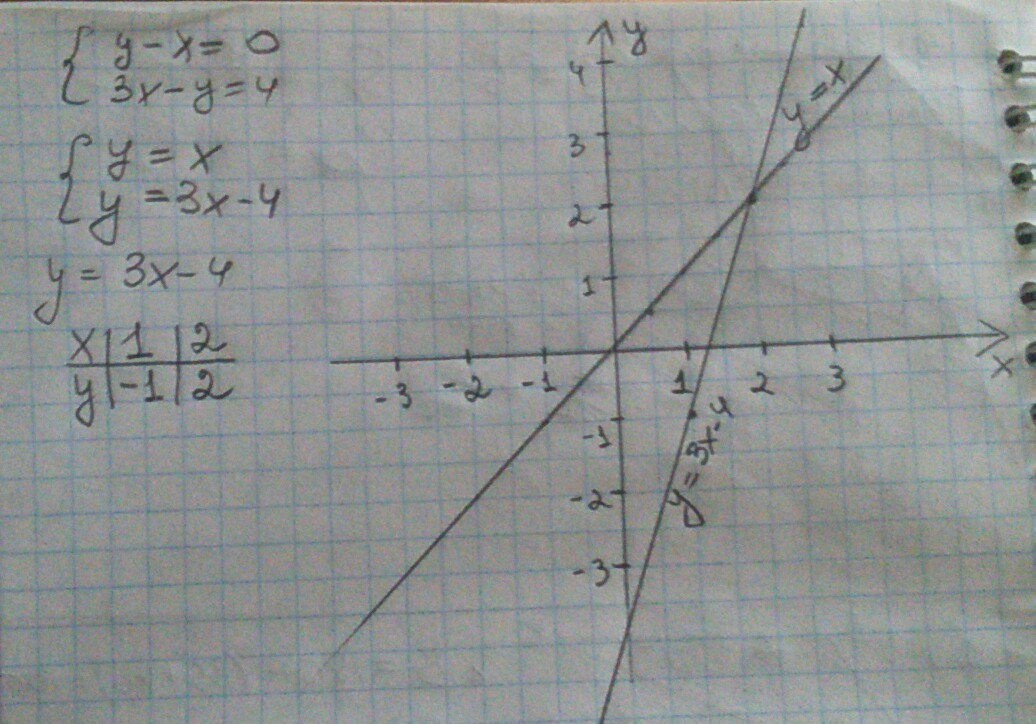 { y - x = 0
{ 3x - y = 4
{ y = x
{ y = 3x - 4
y = 3x - 4
x | 1 | 2
y | -1 | 2
y
4
3
2
1
-1
-2
-3
-3 -2 -1 1 2 3 x
y = x
y = 3x - 4